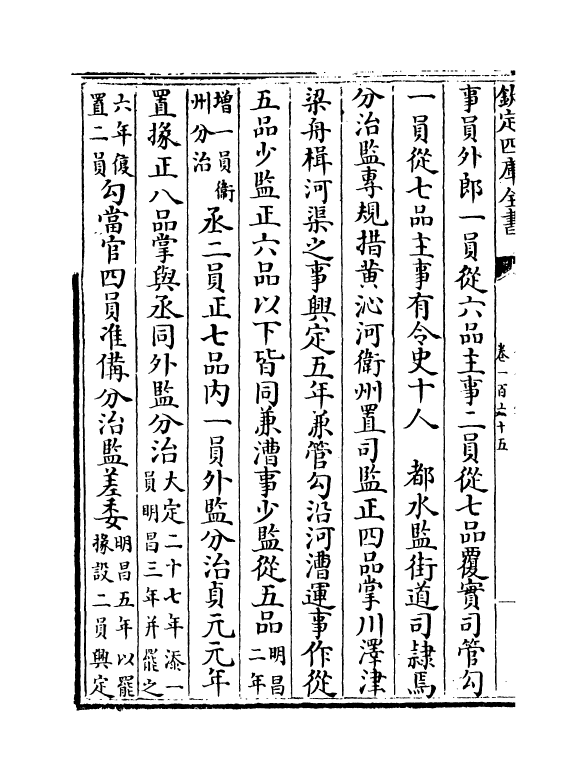 欽定四庫全書
卷一百六十五
事員外郎一員從六品主事二員從七品覆實司管勾
一員從七品主事有令史十人　都水監街道司隸焉
分治監專規措黄沁河衛州置司監正四品掌川澤津
梁舟楫河渠之事興定五年兼管勾沿河漕運事作從
五品少監正六品以下皆同兼漕事少監從五品明昌二年
增一員衛州分治丞二員正七品内一員外監分治貞元元年
置掾正八品掌與丞同外監分治大定二十七年添一員明昌三年并罷之
六年復置二員勾當官四員准備分治監差委明昌五年以罷掾設二員興定